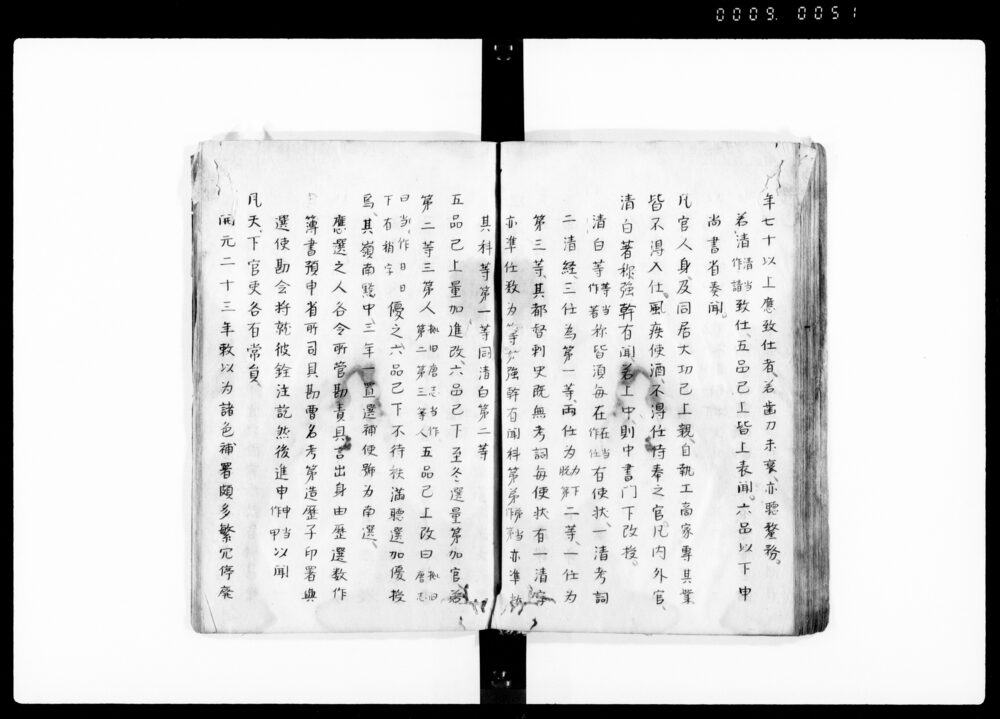 0009. 0051
年七十以上應致仕者、若齒力未衰、亦聽釐務。
若清清当作請致仕、五品已上皆上表聞。六品以下申
尚書省奏聞。
凡官人身及同居大功已上親、自執工商家專其業
皆不得入仕。風疾使酒、不得任侍奉之官。凡内外官、
清白著称、強幹有聞、若上中、則中書門下改授。
清白等等当作著称、皆須毎在在当作任有使状、一清考詞
二清経、三仕為第一等、両仕為為下脱第二等、一仕為
第三等、其都督刺史既無考詞、毎使状有一清字
亦準仕数為等第、強幹有聞科第 亦準
其科等第一等同清白第二等
五品已上量加進改、六品已下至冬選量第加官
第二等三第人拠旧唐志当作第二第三等人五品已上改曰拠旧唐志
曰当作日日下有稍字優之六品已下不待秩満聴選加優授
焉、其嶺南黔中三年一置選補使、号為南選、
應選之人、各令所管勘責、具言出身由歴選数作
簿書預申省所司具勘曹名考第造歴子印署与
選使勘会将就彼銓注訖然後進申申当作甲以聞
凡天下官吏各有常員。
開元二十三年敕以為諸色補署頗多繁冗停廃